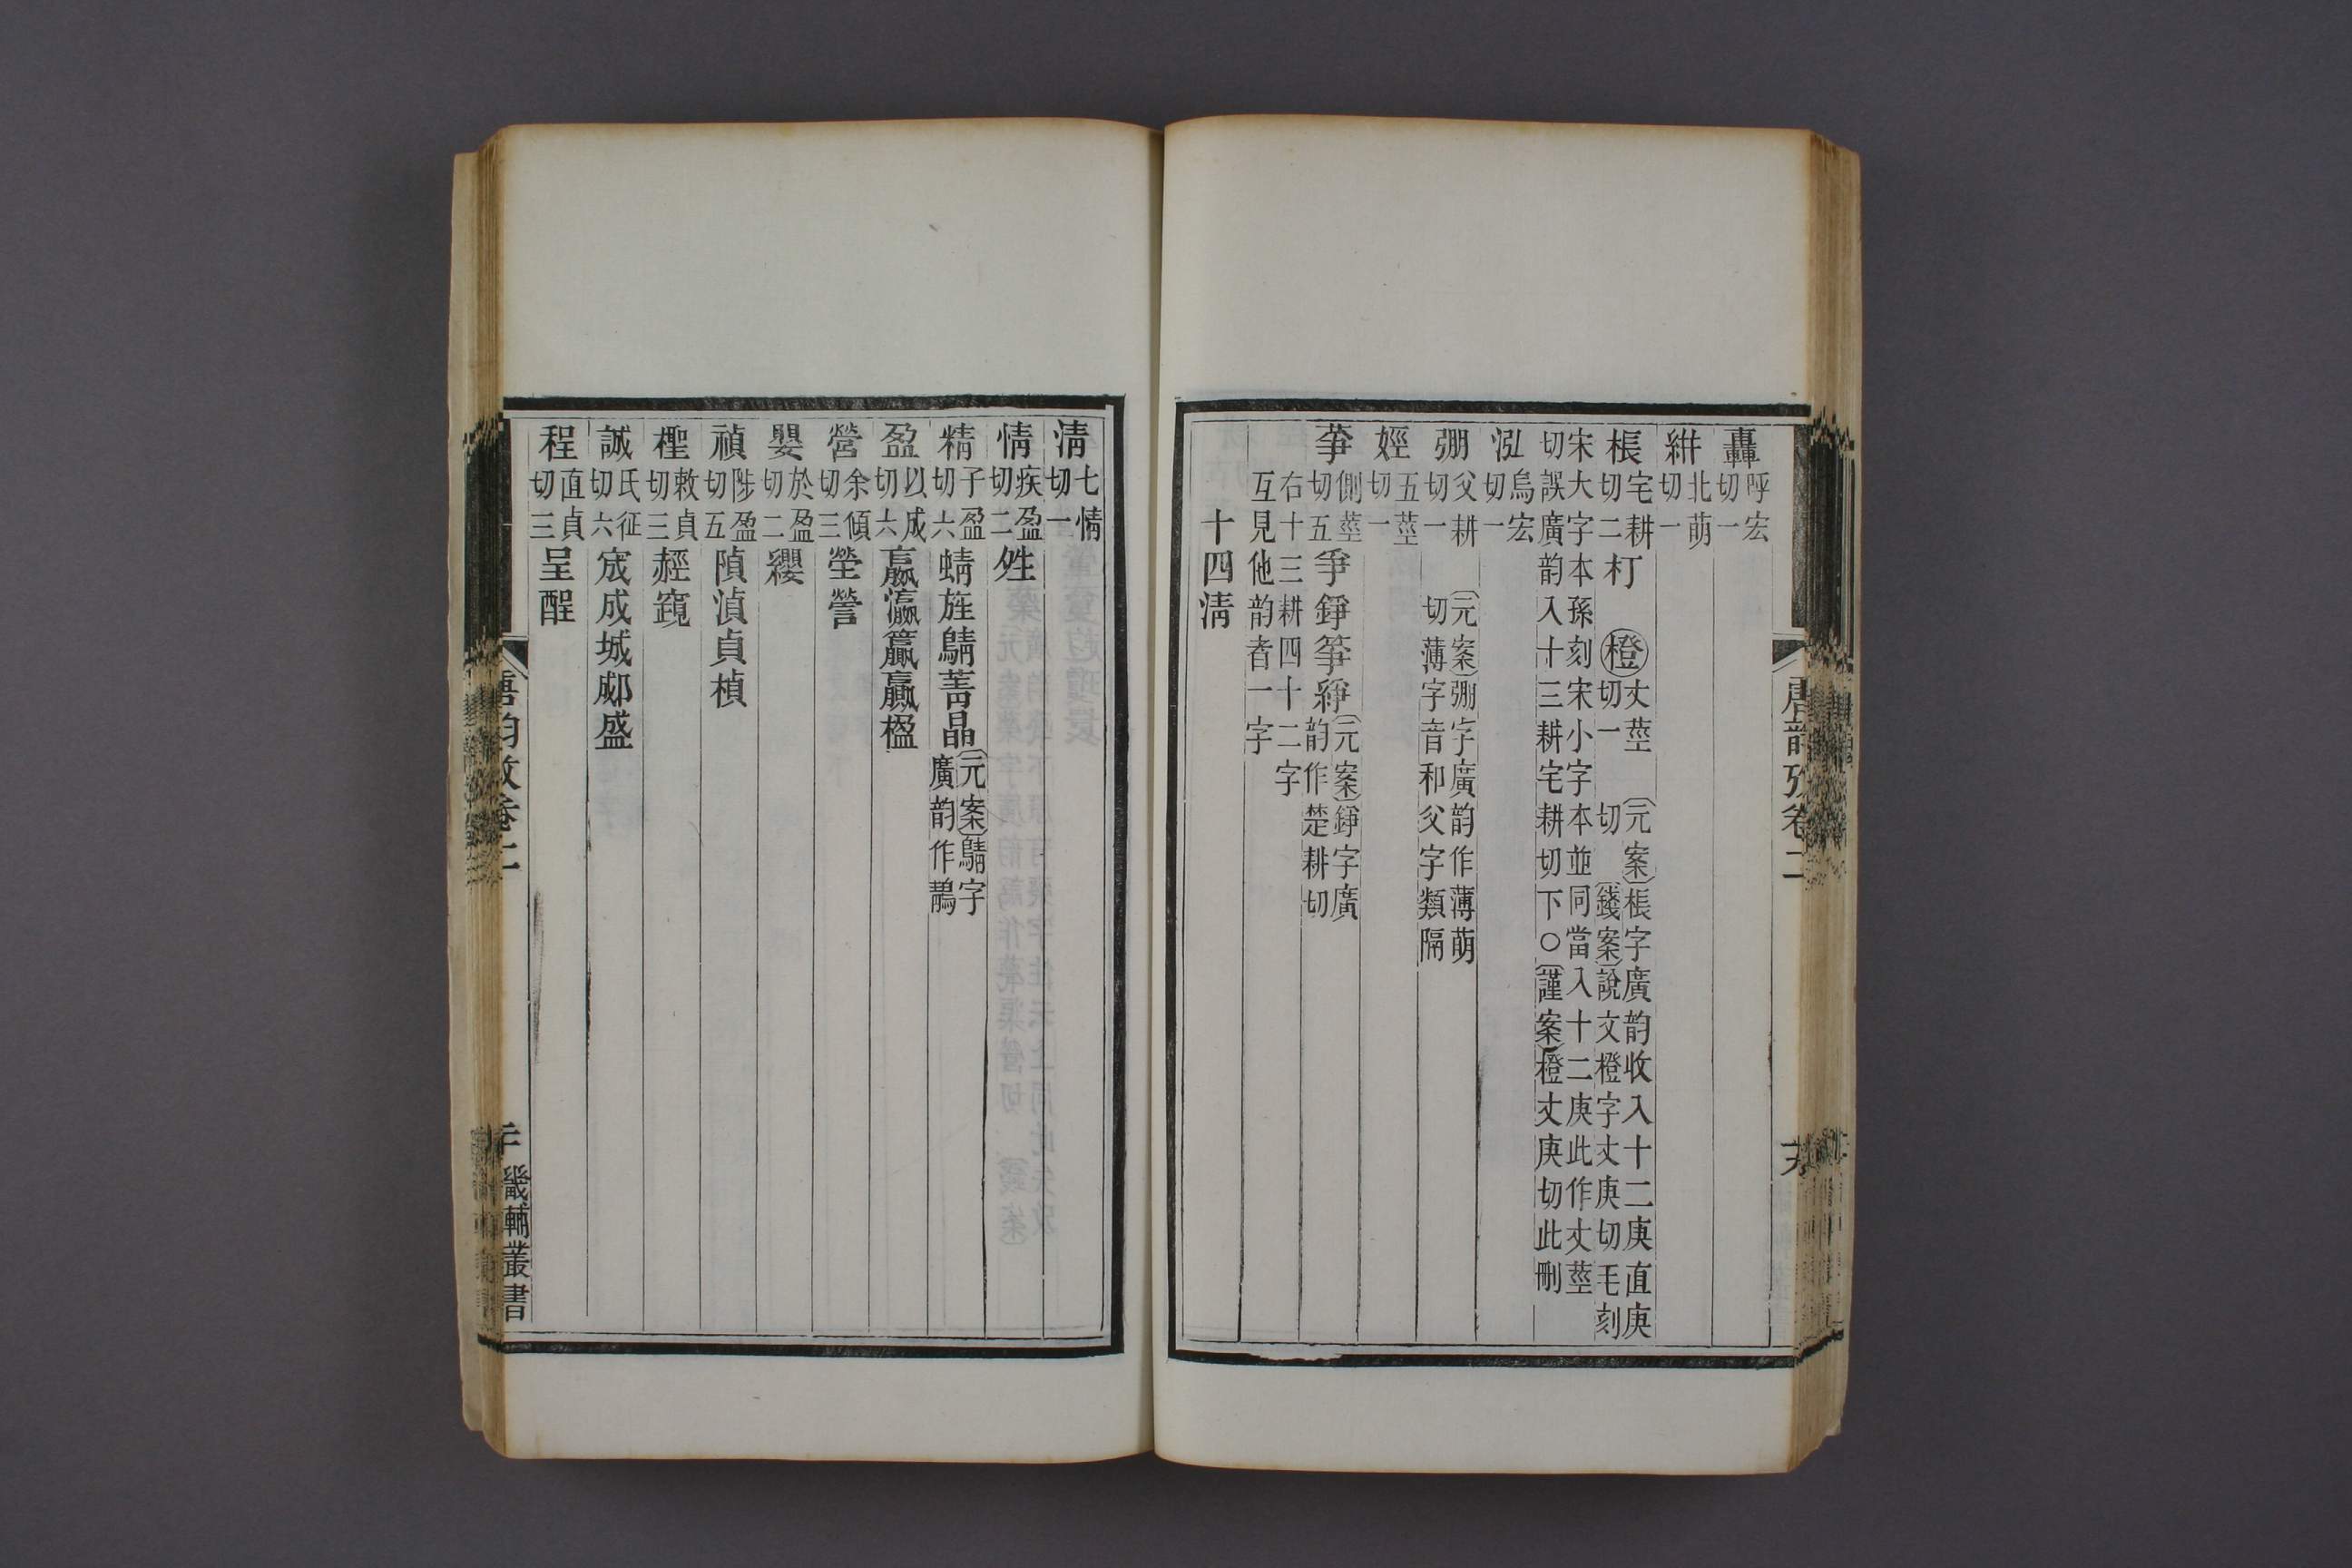 轟呼宏切一
絣北萌切一
棖宅耕切二朾 橙丈莖切一 元案棖字廣韵收入十二庚直庚切 錢案說文橙字丈庚切毛刻
宋大字本孫刻宋小字本並同當入十二庚此作丈莖切誤廣韵入十三耕宅耕切下○謹案橙丈庚切此刪
泓烏宏切一
弸父耕切一 元案弸字廣韵作薄萌切薄字音和父字類隔
娙五莖切一
𦫵側莖切五爭錚箏綪元案錚字廣韵作楚耕切
右十三耕四十二字
互見他韵者一字
十四淸
唐韵攷卷二
淸七情切一
情疾盈切二姓
精子盈切六蜻旌鶄菁晶元案鶄字廣韵作鶄
盈以成切六嬴瀛籯贏楹
營余傾切三塋謍
嬰於盈切二纓
禎陟盈切五隕湞貞楨
檉敕貞切三經竀
誠氏征切六宬成城郕盛
程直貞切三呈酲
唐韵攷卷二
畿輔叢書